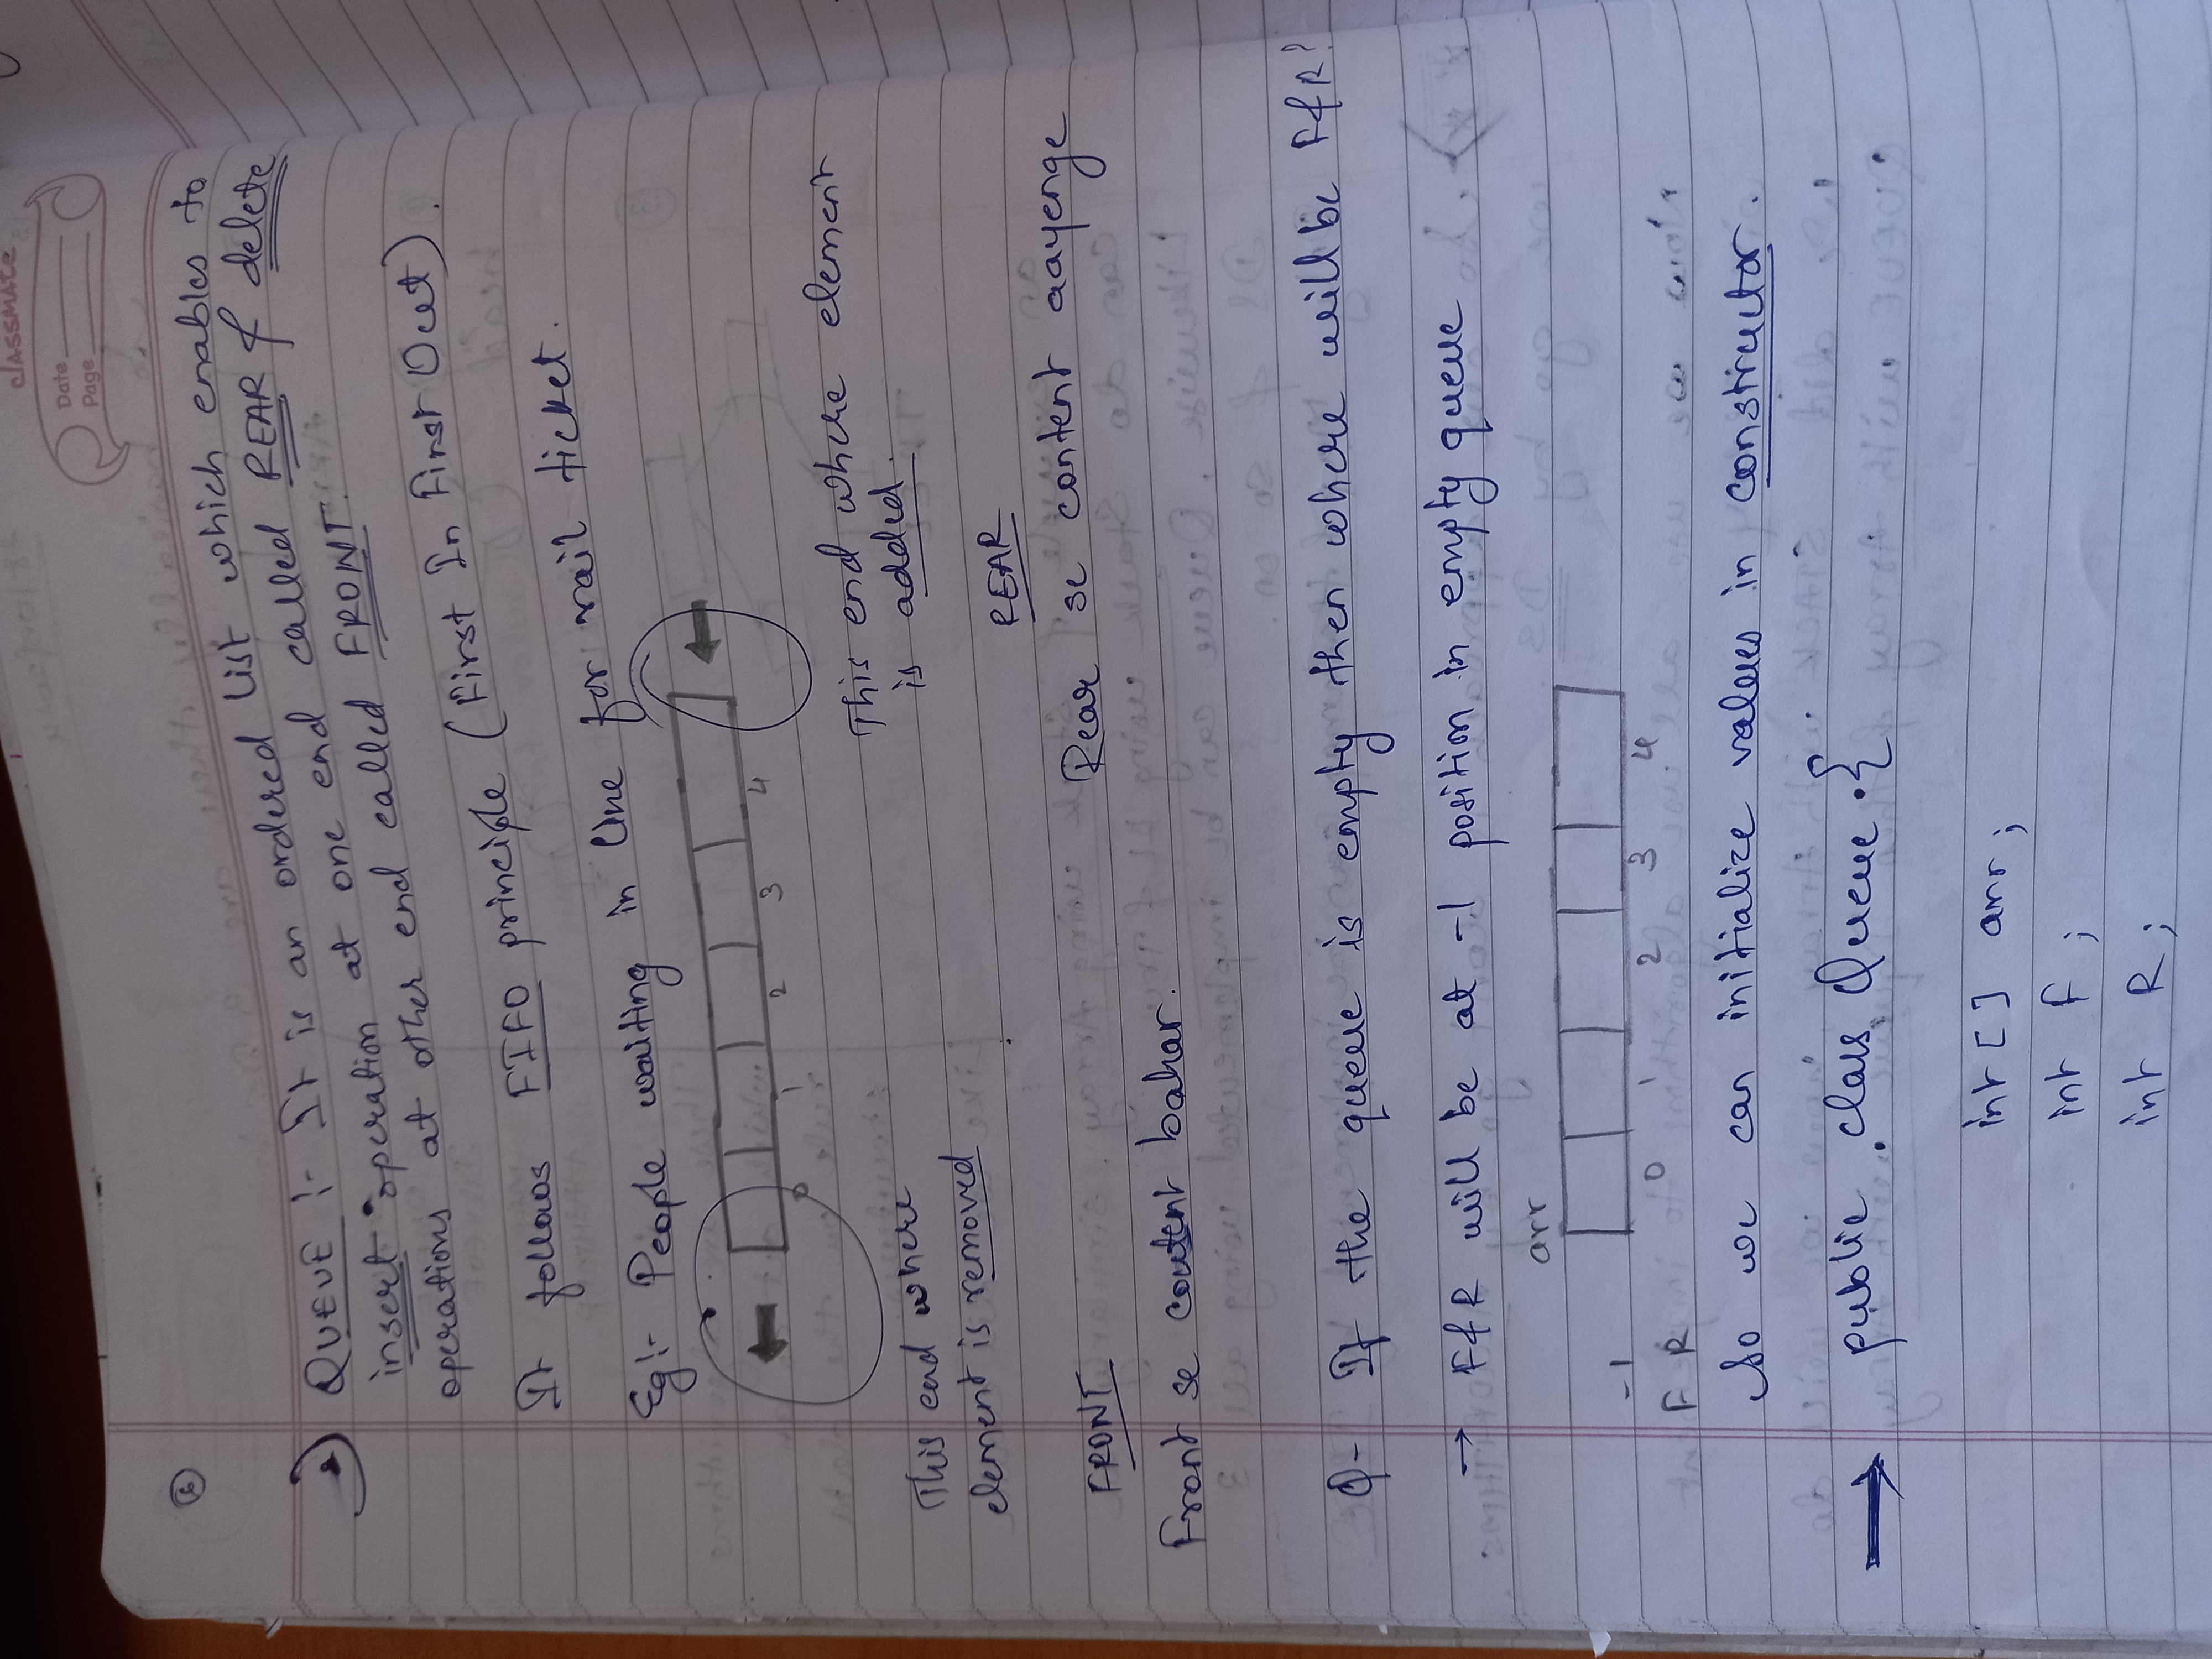 classmate
Date
Page
6
QUEUE :- It is an ordered list which enables to
insert operation at one end called REAR & delete
operations at other end called FRONT.
It follows FIFO principle (First In First Out).
Eg:- People waiting in line for rail ticket.
0 1 2 3 4
This end where element
is added.
This end where
element is removed
REAR
Rear se content aayenge
FRONT
Front se content bahar.
Q- If the queue is empty then where will be F&R?
→ F&R will be at -1 position in empty queue
arr
-1
0 1 2 3 4
F R
So we can initialize values in constructor.
→ public class Queue {
int [] arr;
int F;
int R;